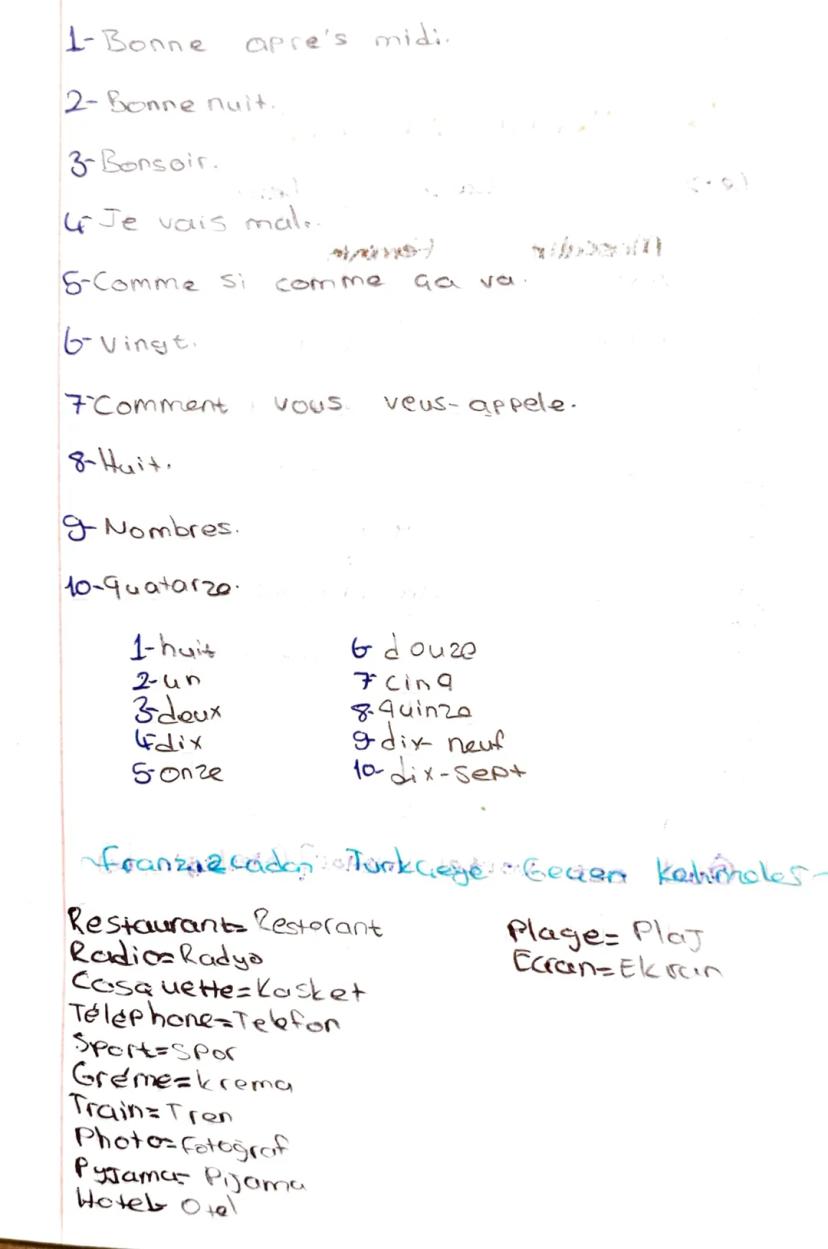 1-Bonne apre's midi.
2-Bonne nuit.
3-Bonsoir.
4-Je vais mal.
5-Comme si comme ça va.
6-Vingt.
7-Comment vous veus-appele.
8-Huit.
9-Nombres.
10-quatarze.
1-huit
2-un
3-deux
4-dix
5-onze
6-douze
7-cinq
8-quinze
9-dix-neuf
10-dix-sept
Restaurant=Restorant
Radio=Radyo
Casquette=Kasket
Téléphone=Telefon
Sport=Spor
Créme=krema
Train=Tren
Photo=fotoğraf
Pyjama=Pijama
Hotel=Otel
Plage=Plaj
Ecran=Ekran